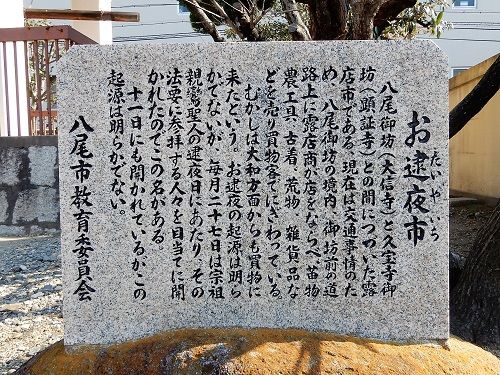 お逮夜市
たいやいち
八尾御坊(大信寺)と久宝寺御
坊(顕証寺)との間につづいた露
店市である。現在は交通事情のた
め、八尾御坊の境内、御坊前の道
路上に露店商が店をならべ、苗物
農工具、古着、荒物、雑貨品な
どを売り買物客でにぎわっている。
むかしは大和方面からも買物に
来たという。お逮夜の起源は明ら
かでないが、毎月二十七日は宗祖
親鸞聖人の逮夜日にあたり、その
法要に参拝する人々を目当てに開
かれたのでこの名がある。
十一日にも開かれているが、この
起源は明らかでない。
八尾市教育委員会